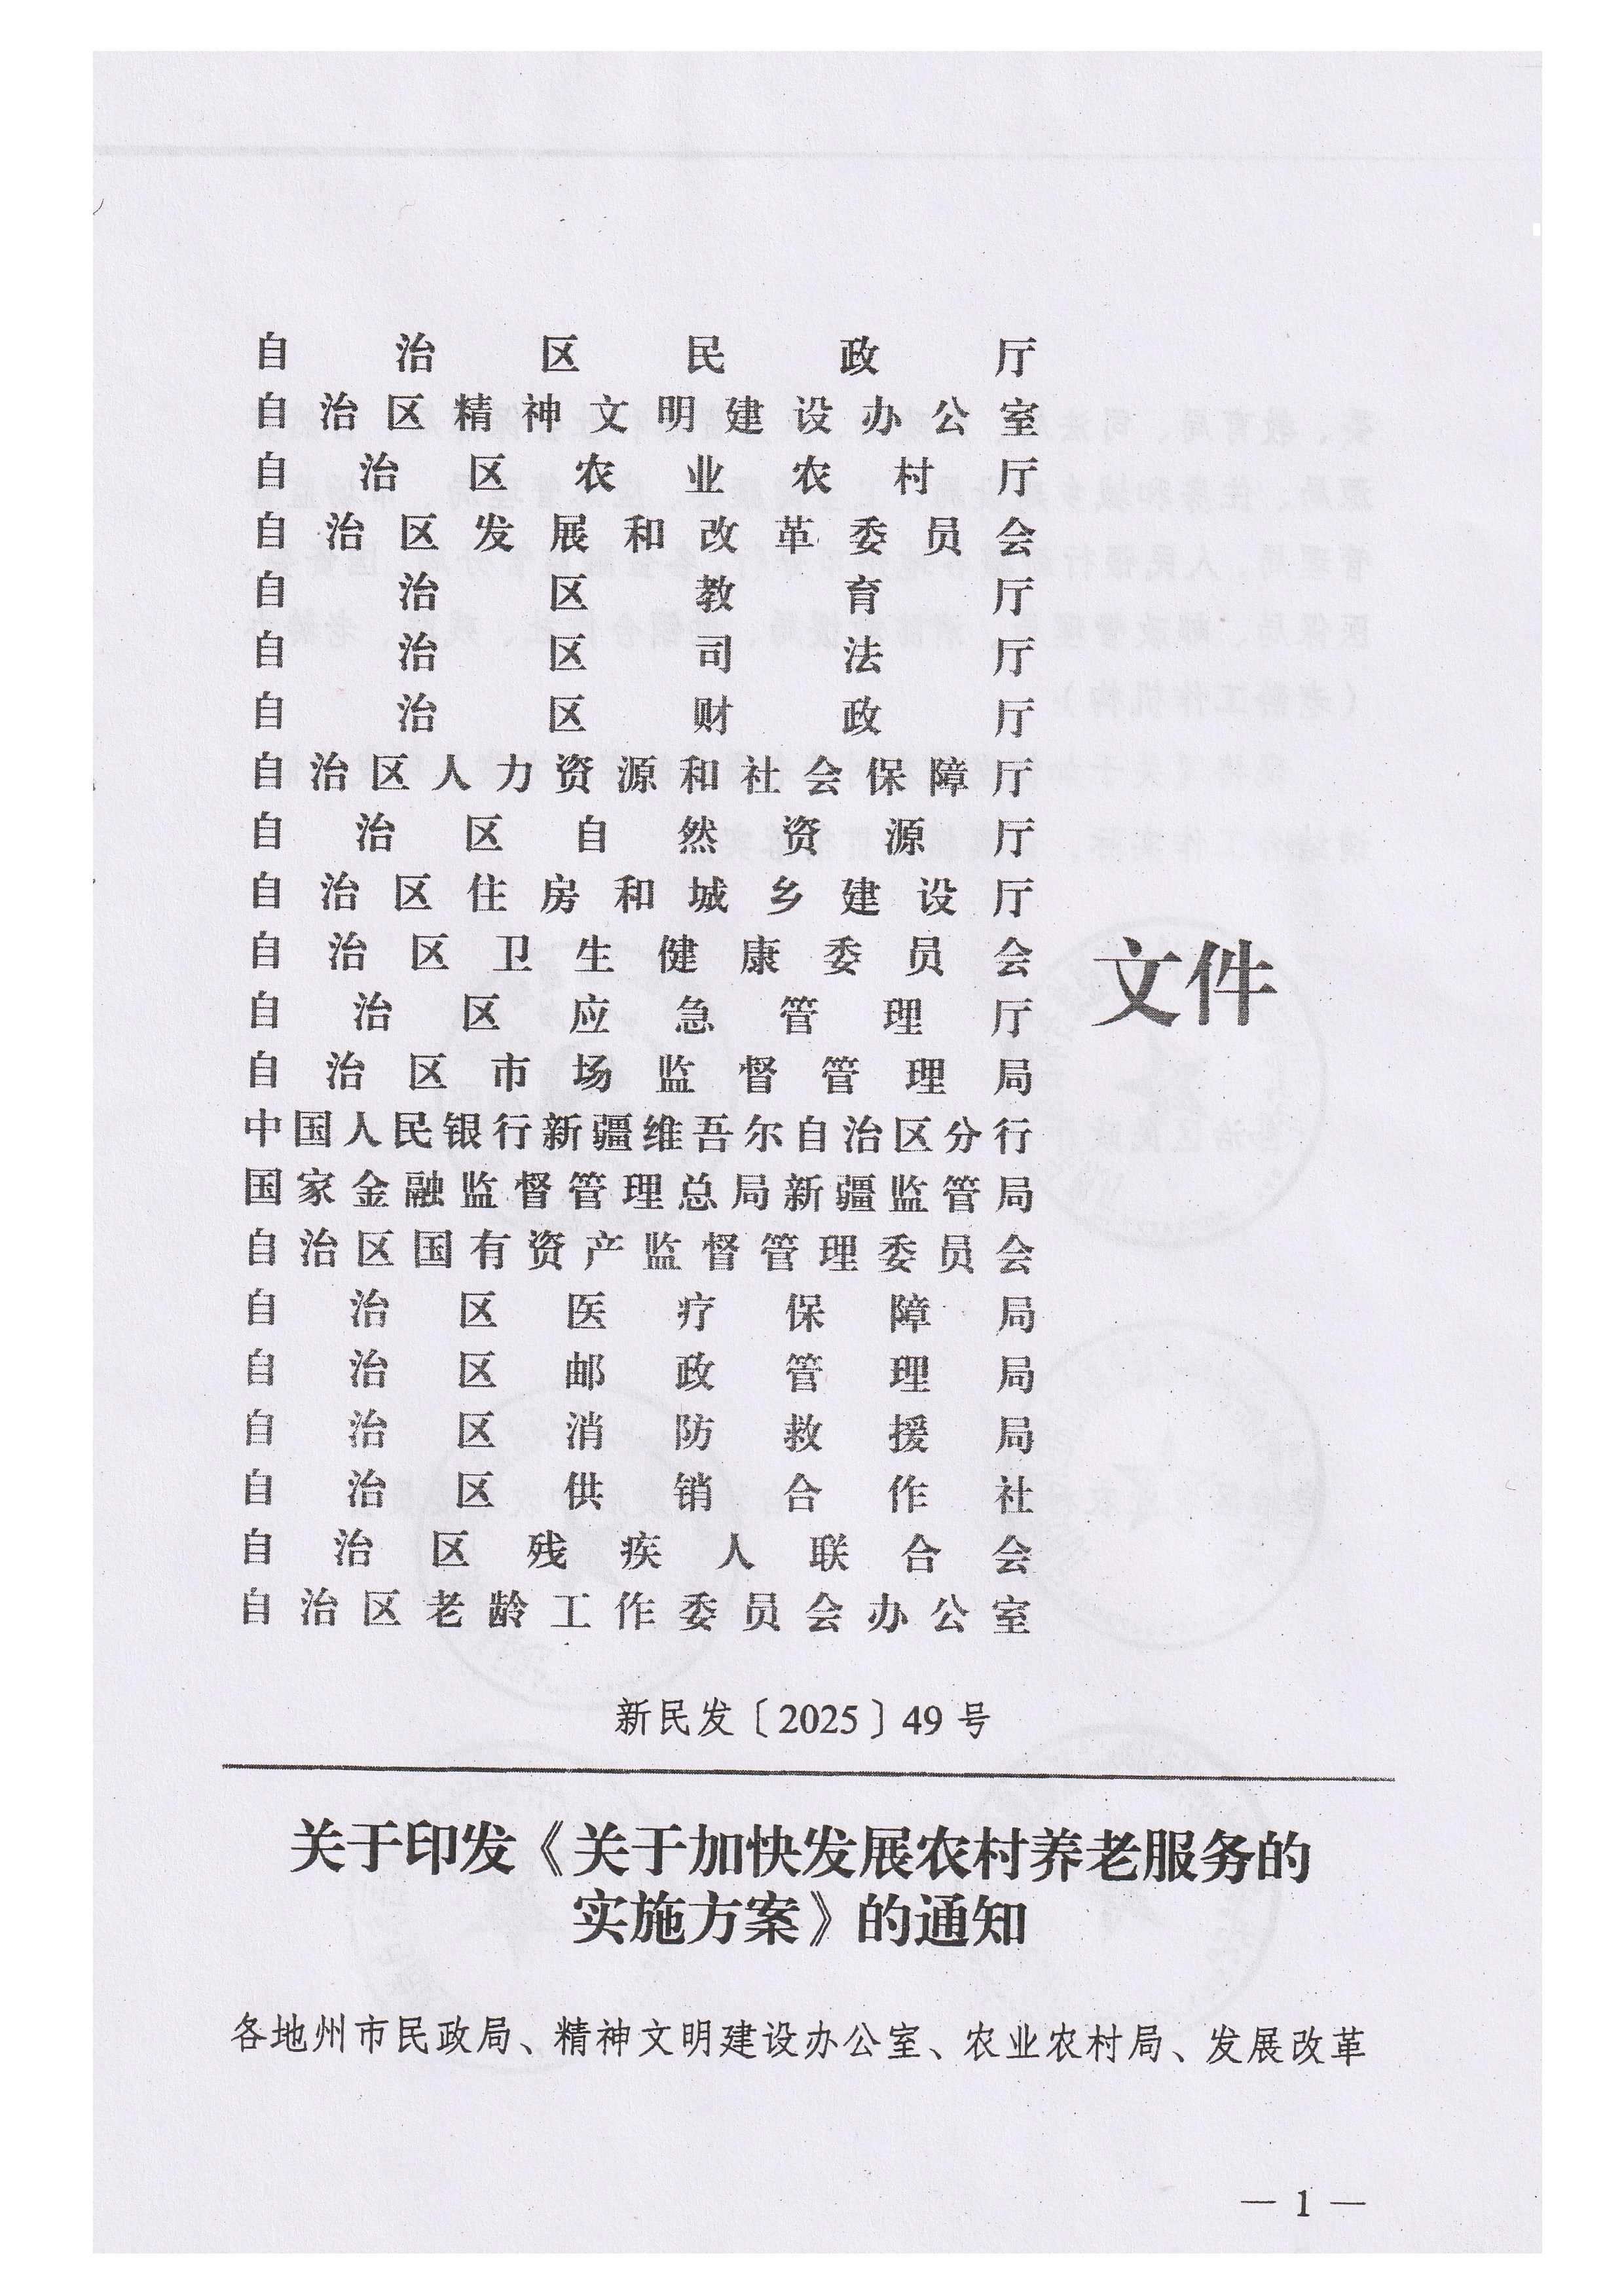 自治区民政厅
自治区精神文明建设办公室
自治区农业农村厅
自治区发展和改革委员会
自治区教育厅
自治区司法厅
自治区财政厅
自治区人力资源和社会保障厅
自治区自然资源厅
自治区住房和城乡建设厅
自治区卫生健康委员会
自治区应急管理厅
自治区市场监督管理局
中国人民银行新疆维吾尔自治区分行
国家金融监督管理总局新疆监管局
自治区国有资产监督管理委员会
自治区医疗保障局
自治区邮政管理局
自治区消防救援局
自治区供销合作社
自治区残疾人联合会
自治区老龄工作委员会办公室
文件
新民发〔2025〕49号
关于印发《关于加快发展农村养老服务的
实施方案》的通知
各地州市民政局、精神文明建设办公室、农业农村局、发展改革
— 1 —